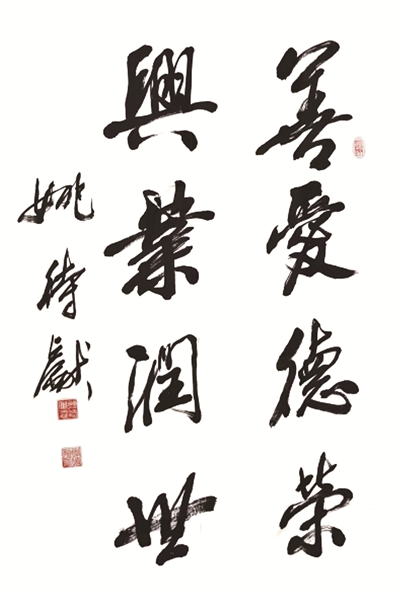 善愛德榮
興業潤世
姚待獻